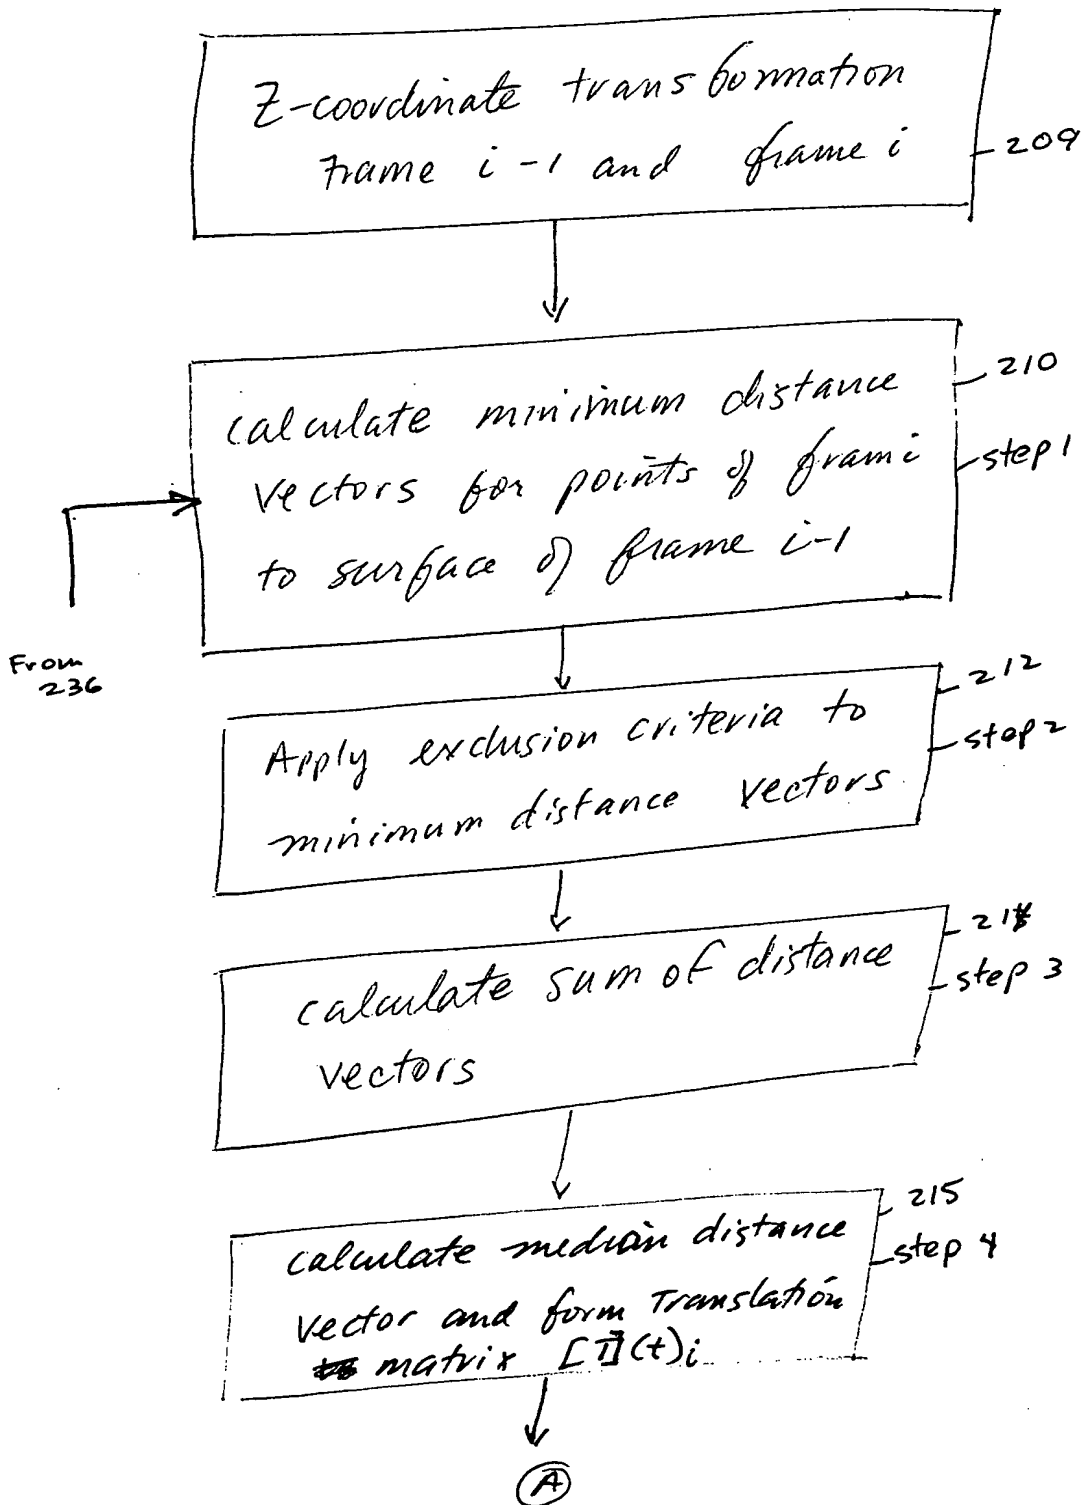 Z-coordinate transformation
Frame i-1 and frame i
209
calculate minimum distance
vectors for points of frami
to surface of frame i-1
210
step 1
From
236
Apply exclusion criteria to
minimum distance vectors
212
step 2
calculate sum of distance
vectors
step 3
calculate median distance
vector and form Translation
matrix [T](t)i
215
step 4
A